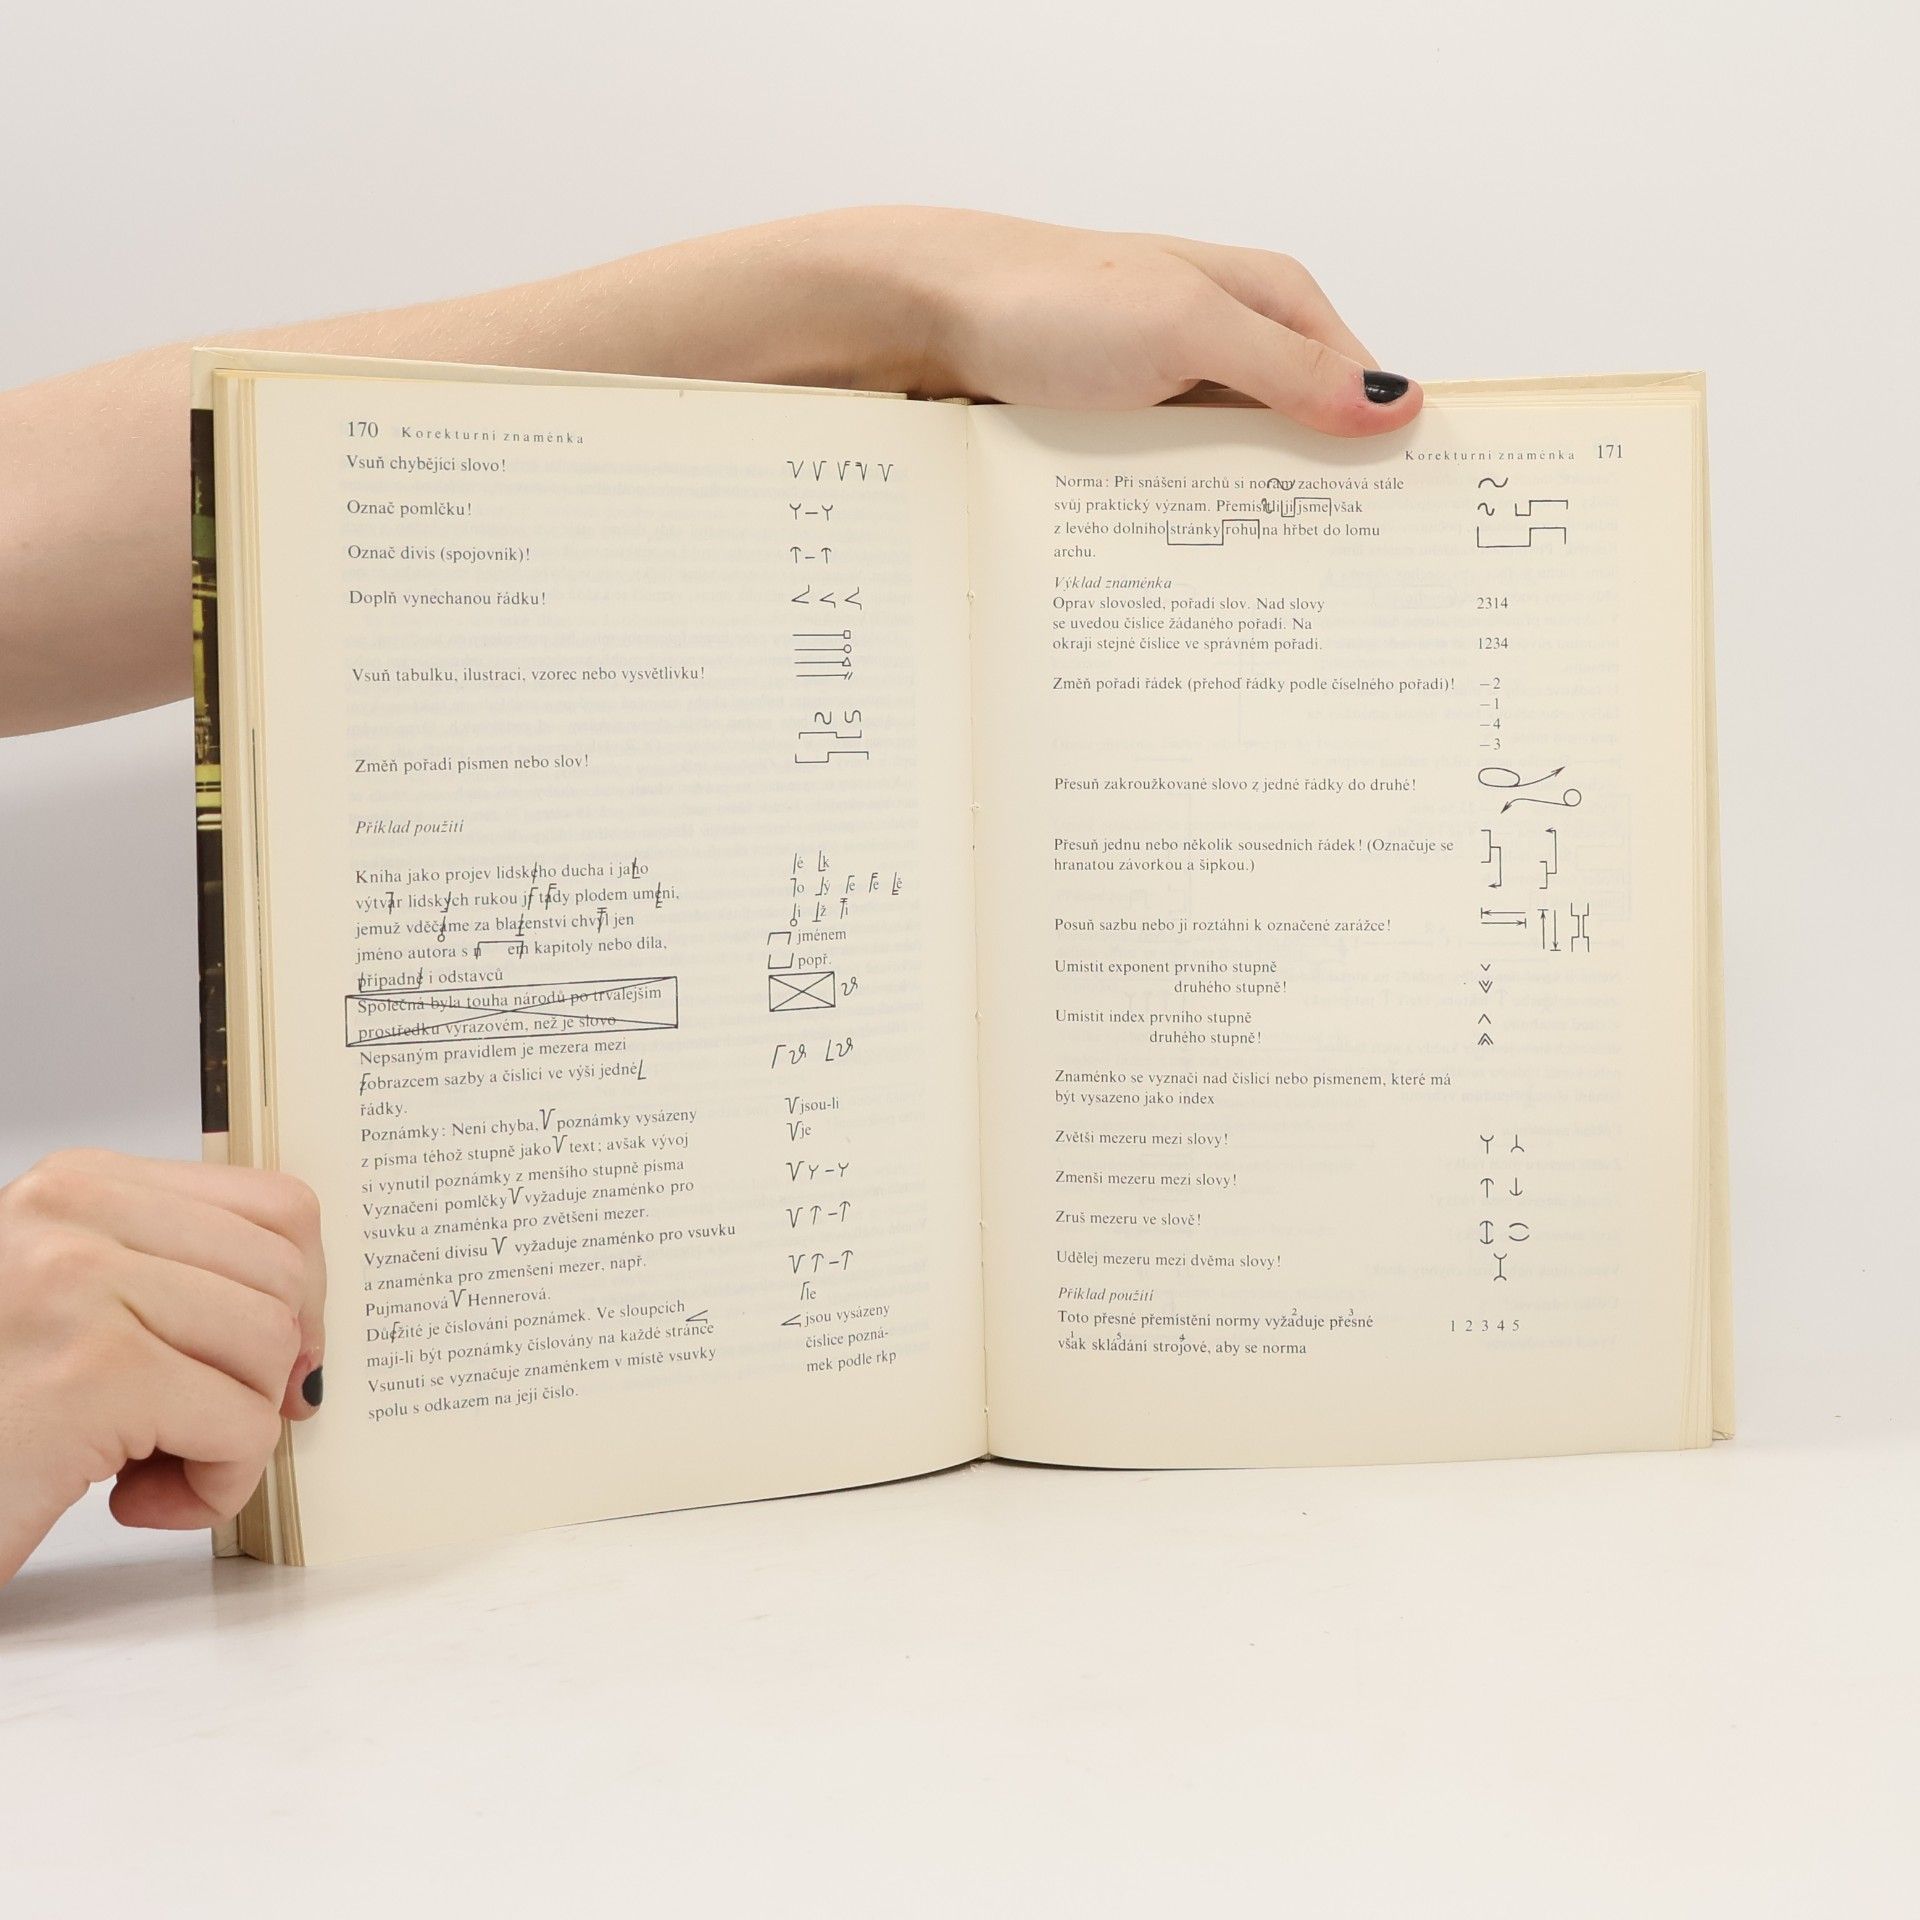 170 Korekturní znaménka
Vsuň chybějící slovo!
Označ pomlčku!
Označ divis (spojovník)!
Doplň vynechanou řádku!
Vsuň tabulku, ilustraci, vzorec nebo vysvětlivku!
Změň pořadí písmen nebo slov!
Příklad použití
Kniha jako projev lidského ducha i jaho é k
výtvar lidských rukou je tady plodem umění, o ý e e ě
jemuž vděčíme za blaženství chvíl jen i ž i
jméno autora s n em kapitoly nebo díla, jménem
případně i odstavců popř.
Společná byla touha národů po trvalejším
prostředku výrazovém, než je slovo
Nepsaným pravidlem je mezera mezi
zobrazcem sazby a číslicí ve výši jedné
řádky.
Poznámky: Není chyba, poznámky vysázeny jsou-li
z písma téhož stupně jako text; avšak vývoj je
si vynutil poznámky z menšího stupně písma
Vyznačení pomlčky vyžaduje znaménko pro
vsuvku a znaménka pro zvětšení mezer.
Vyznačení divisu vyžaduje znaménko pro vsuvku
a znaménka pro zmenšení mezer, např.
Pujmanová Hennerová. le
Důežité je číslování poznámek. Ve sloupcích jsou vysázeny
mají-li být poznámky číslovány na každé stránce číslice pozná-
Vsunutí se vyznačuje znaménkem v místě vsuvky mek podle rkp
spolu s odkazem na její číslo.
Korekturní znaménka 171
Norma: Při snášení archů si noram zachovává stále
svůj praktický význam. Přemístili ji jsme však
z levého dolního stránky rohu na hřbet do lomu
archu.
Výklad znaménka
Oprav slovosled, pořadí slov. Nad slovy 2314
se uvedou číslice žádaného pořadí. Na
okraji stejné číslice ve správném pořadí. 1234
Změň pořadí řádek (přehoď řádky podle číselného pořadí)! –2
–1
–4
–3
Přesuň zakroužkované slovo z jedné řádky do druhé!
Přesuň jednu nebo několik sousedních řádek! (Označuje se
hranatou závorkou a šipkou.)
Posuň sazbu nebo ji roztáhni k označené zarážce!
Umístit exponent prvního stupně
druhého stupně!
Umístit index prvního stupně
druhého stupně!
Znaménko se vyznačí nad číslicí nebo písmenem, které má
být vysazeno jako index
Zvětši mezeru mezi slovy!
Zmenši mezeru mezi slovy!
Zruš mezeru ve slově!
Udělej mezeru mezi dvěma slovy!
Příklad použití
Toto přesné přemístění normy vyžaduje přesné 1 2 3 4 5
však skládání strojové, aby se norma